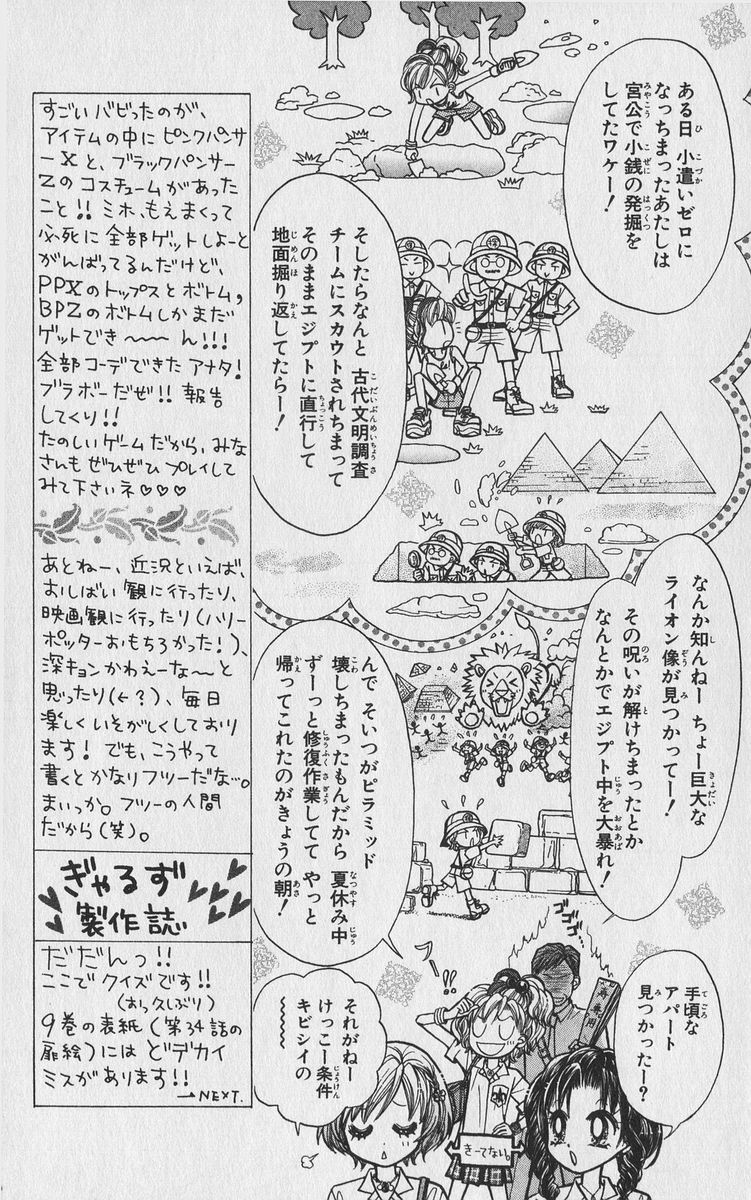 ある日 小遣いゼロに
なっちまったあたしは
宮公で小銭の発掘を
してたワケー!
そしたらなんと 古代文明調査
チームにスカウトされちまって
そのままエジプトに直行して
地面掘り返してたらー!
なんか知んねー ちょー巨大な
ライオン像が見つかってー!
その呪いが解けちまったとか
なんとかでエジプト中を大暴れ!
んで そいつがピラミッド
壊しちまったもんだから 夏休み中
ずーっと修復作業してて やっと
帰ってこれたのがきょうの朝!
ゴゴゴ…
フー!!
手頃な
アパート
見つかったー?
それがねー
けっこー条件
キビシイの
〜〜〜〜
きーてない。
すごいバビったのが、
アイテムの中にピンクパンサ
ーXと、ブラックパンサー
Zのコスチュームがあった
こと!!ミホ、もえまくって
必死に全部ゲットしよーと
がんばってるんだけど、
PPXのトップスとボトム,
BPZのボトムしかまだ
ゲットできー〜〜ん!!!
全部コーデできたアナタ!
ブラボーだぜ!!報告
してくり!!
たのしいゲームだから、みな
さんもぜひぜひプレイして
みて下さいネ♡♡♡
あとねー、近況といえば、
おしばい観に行ったり、
映画観に行ったり(ハリー
ポッターおもちろかった!)、
深キョンかわえーな〜と
思ったり(←?)、毎日
楽しくいそがしくしており
ます!でも、こうやって
書くとかなりフツーだな…。
まいっか。フツーの人間
だから(笑)。
ぎゃるず
製作誌
だだんっ!!
ここでクイズです!!
(おっ久しぶり)
9巻の表紙(第34話の
扉絵)にはどデカイ
ミスがあります!!
→NEXT.